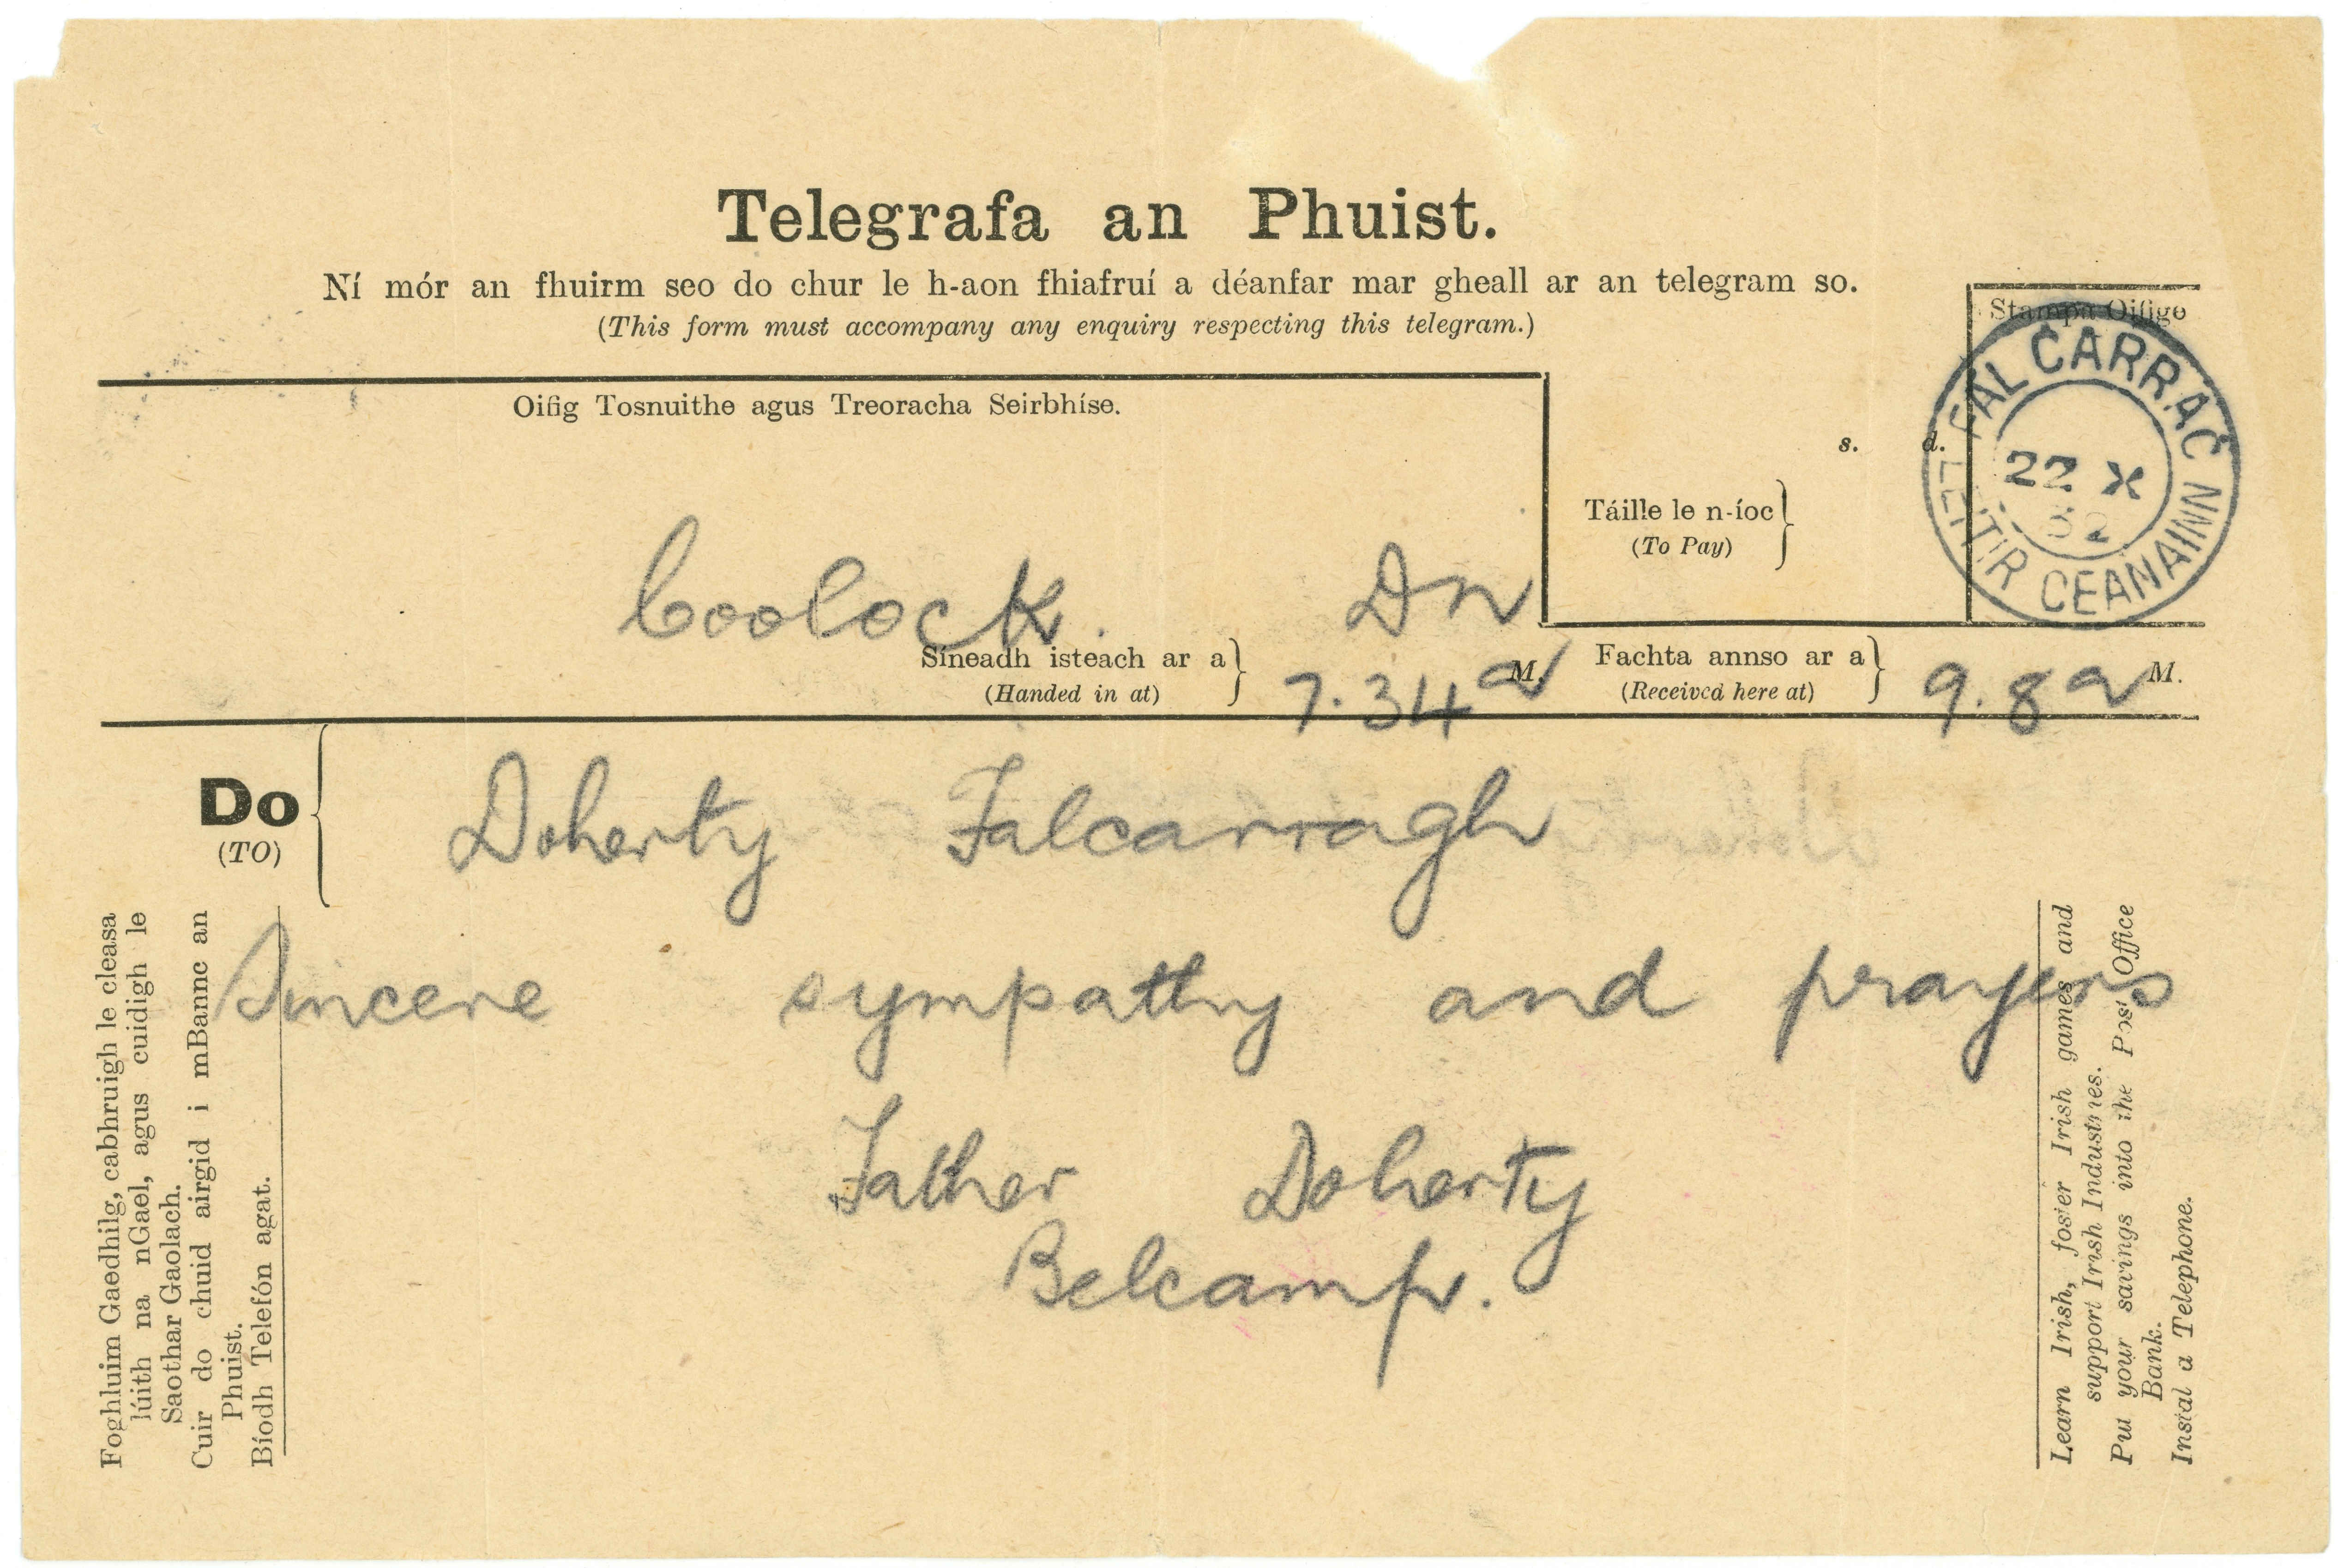 Telegrafa an Phuist.
Ní mór an fhuirm seo do chur le h-aon fhiafruí a déanfar mar gheall ar an telegram so.
(This form must accompany any enquiry respecting this telegram.)
Stampa Oifige
FAL CARRAĊ
22 X
32
LEITIR CEANAINN
Oifig Tosnuithe agus Treoracha Seirbhíse.
s. d.
Táille le n-íoc
(To Pay)
Coolock. Dn
Síneadh isteach ar a
(Handed in at)
7.34a M.
Fachta annso ar a
(Received here at)
9.8a M.
Do
(TO)
Doherty Falcarragh
Sincere sympathy and prayers
Father Doherty
Belcamp.
Foghluim Gaedhilg, cabhruigh le cleasa
lúith na nGael, agus cuidigh le
Saothar Gaolach.
Cuir do chuid airgid i mBannc an
Phuist.
Bíodh Telefón agat.
Learn Irish, foster Irish games and
support Irish Industries.
Put your savings into the Post Office
Bank.
Instal a Telephone.